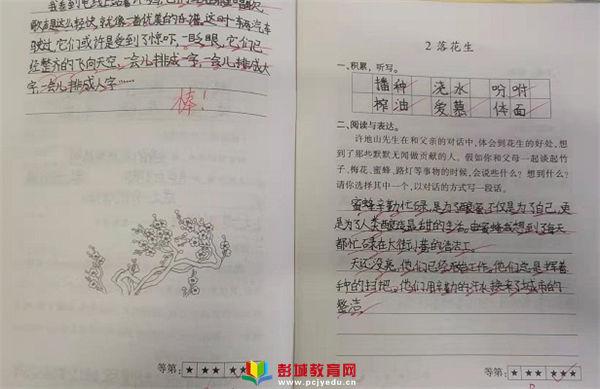 歌声是这么轻快,就像一首优美的乐谱。这时一辆汽车
驶过,它们或许是受到了惊吓,一眨眼,它们已
经整齐的飞向天空,一会儿排成一字,一会儿排成大
字,一会儿排成人字……
棒!
等第:★ ★★ ★★★
2 落花生
一、积累,听写。
播种 浇水 吩咐
榨油 爱慕 体面
二、阅读与表达。
许地山先生在和父亲的对话中,体会到花生的好处,想
到了那些默默无闻做贡献的人。假如你和父母一起谈起竹
子、梅花、蜜蜂、路灯等事物的时候,会说些什么?想到什么?
请你选择其中一个,以对话的方式写一段话。
蜜蜂辛勤忙碌,是为了酿蜜,不仅是为了自己,更
是为了人类酿造最甜的生活。由蜜蜂我想到了每天
都忙碌在大街小巷的清洁工。
天还没亮,他们已经开始工作,他们总是挥着
手中的扫把。他们用辛勤的汗水换来了城市的
整洁。
等第:★ ★★ ★★★
彭城教育网
www.pcjyedu.cn